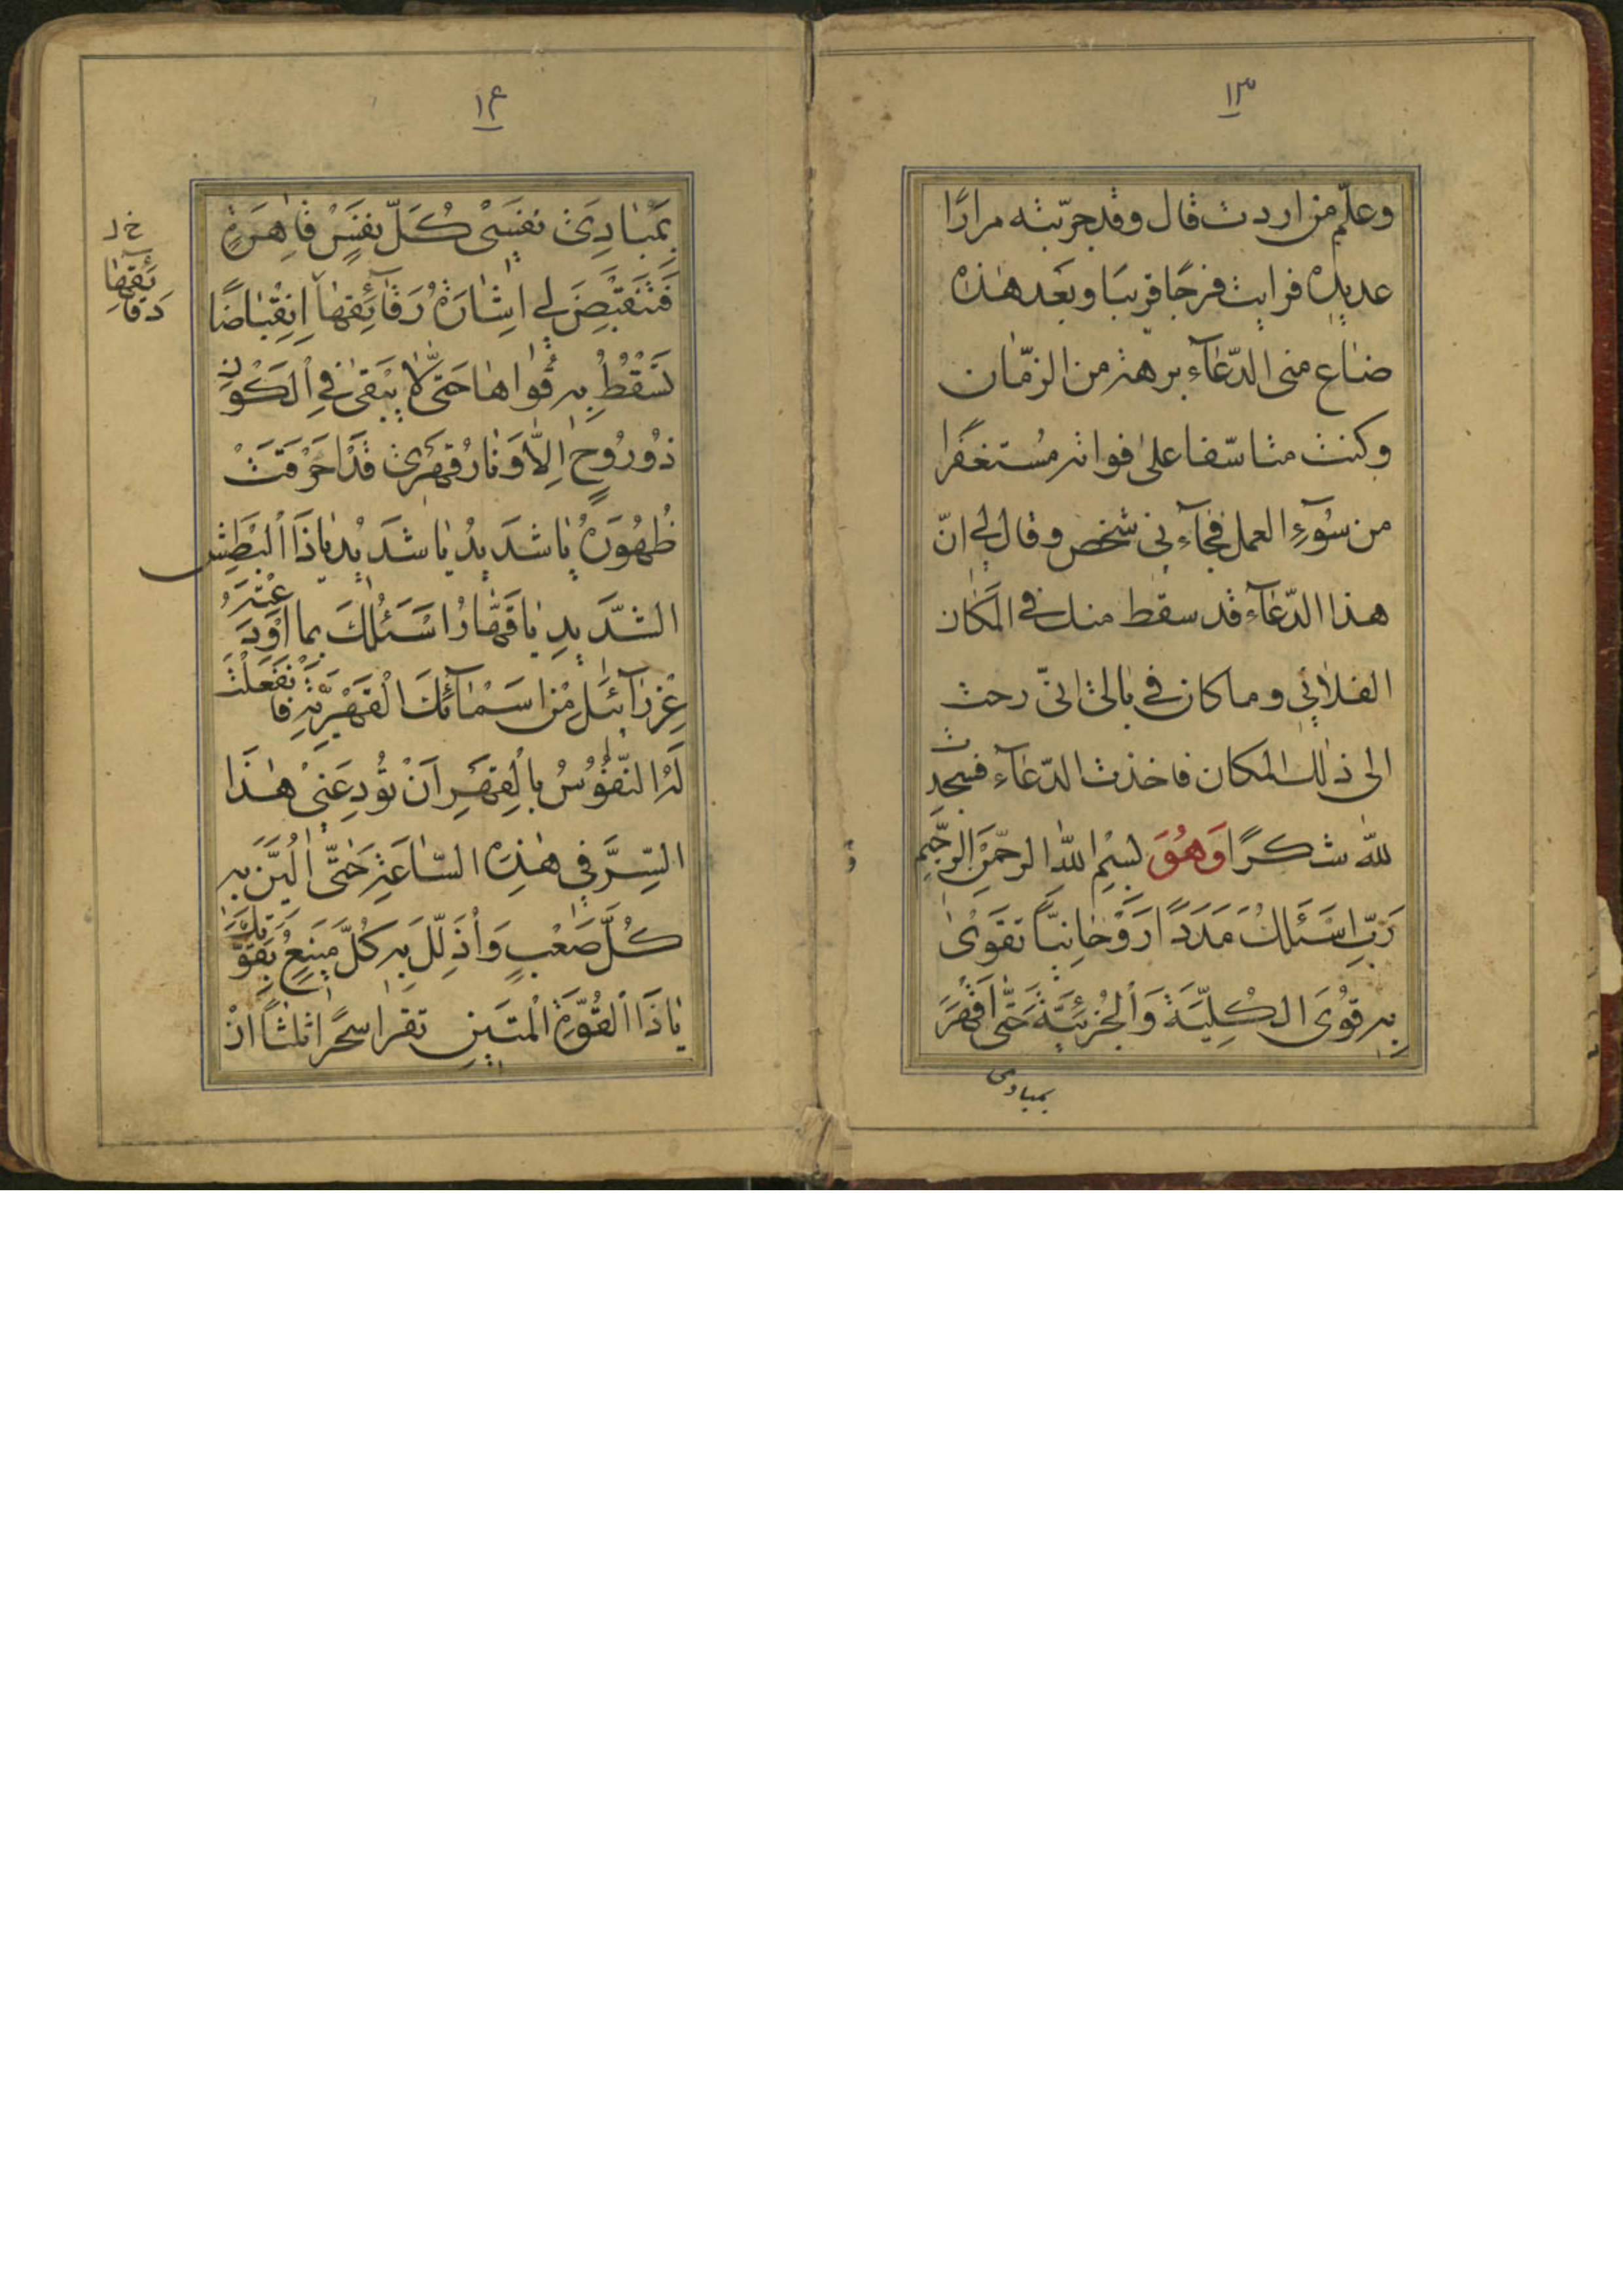 ١٣
وعلّم من اردت قال وقد جرّبته مرارًا
عديدة فرايت فرجًا قريبًا وبعد هٰذه
ضاع منی الدّعآء برهة من الزّمان
وكنت متاسّفا علیٰ فواته مُستغفرا
من سُوٓءِ العمل فجآءنی شخص وقال لی انّ
هذا الدّعآء قد سقط منك فی المكان
الفلانی وما كان فی بالی انّی رحت
الی ذٰلك المكان فاخذت الدّعآء فسجدت
للّٰه شكرًا وَهُوَ بسْمِ اللّٰه الرحمٰنِ الرّحيم
رَبِّ اَسْئَلُكَ مَدَدًا رَوْحانِيًّا تَقْوىٰ
بِهِ قُوَى الكُلِّيَّةَ وَالْجُزْئِيَّةَ حَتّٰى اَقْهَرَ
بمبادی
١٤
بِمَبادِئ نَفسِي كُلَّ نَفْسٍ قاهِرَةٍ
فَتَنْقَبِضَ لی اِشارَةُ رَقآئِقِهٰا اِنقِباضًا
خ ل
دَقآئِقِهٰا
تَسْقُطُ بِهِ قُواها حَتّٰى لا يَبْقیٰ فِی الْكَوْنِ
ذُورُوحٍ اِلّا وَنارُ قَهْری قَدْ اَحْرَقَتْ
ظُهُورَهُ يا شَديدُ يا شَديدُ يا ذَا الْبَطْشِ
الشَّديدِ يا قَهّارُ اَسْئَلُكَ بِما اَوْدَعْتَهُ
عِزْرآئيلَ مِنْ اَسْمآئِكَ الْقَهْرِيَّةِ فَانْفَعَلَتْ
لَهُ النُّفُوسُ بِالْقَهْرِ اَنْ تُودِعَنی هٰذَا
السِّرَّ فی هٰذِهِ السّاعَةِ حَتّٰى اُلَيِّنَ بِهِ
كُلَّ صَعْبٍ وَاُذَلِّلَ بِهِ كُلَّ مَنيعٍ بِقُوَّتِكَ
يا ذَا الْقُوَّةِ الْمَتينِ تقرا سحرًا ثلثًا انْ